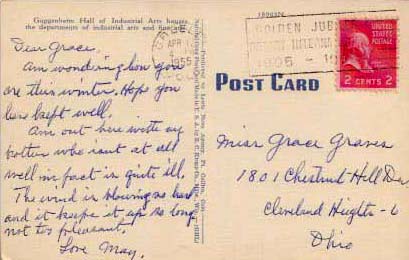 Guggenheim Hall of Industrial Arts houses
the departments of industrial arts and fine arts.
Dear Grace,
Am wondering how you
are this winter. Hope you
have kept well.
Am out here with my
brother who isn't at all
well in fact is quite ill,
The wind is blowing so hard
and it keeps it up so long
not too pleasant.
Love May.
APR
1955
GOLDEN JUBILEE
ROTARY INTERNATIONAL
1905 - 1955
UNITED STATES POSTAGE
2 CENTS 2
POST CARD
Miss Grace Graves
1801 Chestnut Hill Dr
Cleveland Heights - 6
Ohio